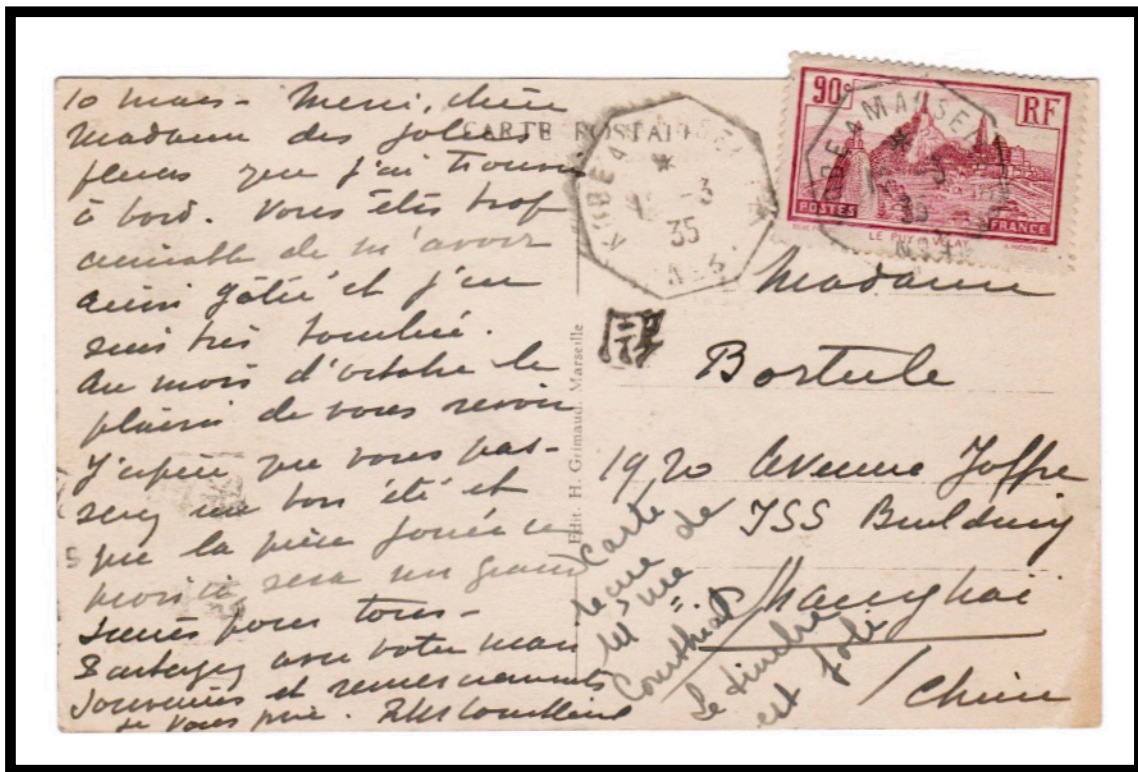 10 mars - Merci, chère
Madame des jolies
fleurs que j'ai trouvé
à bord. Vous êtes trop
aimable de m'avoir
ainsi gâtée et j'en
suis très touchée.
Au mois d'octobre le
plaisir de vous revoir
J'espère que vous pas-
serez un bon été et
que la pièce jouée ce
mois ci sera un grand
succès pour tous -
Partagez avec votre mari
souvenirs et remerciements
je vous prie.
CARTE POSTALE
Edit. H. Grimaud. Marseille
35
90c
RF
POSTES
FRANCE
LE PUY EN VELAY
Madame
Bortule
1920 Avenue Joffre
ISS Building
Shanghai
/ Chine
Carte
reçue de
Mme
Courthial
Le timbre
est joli